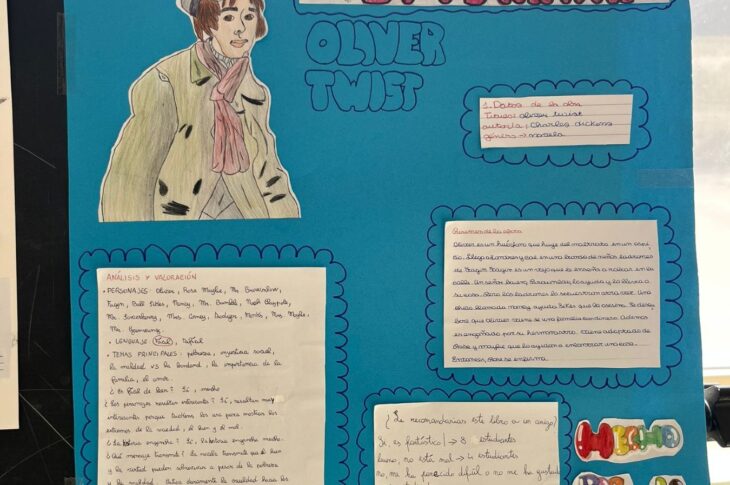 OLIVER
TWIST
1. Datos de la obra
Título: oliver twist
autoría: Charles dickens
género → novela
Resumen de la obra
Oliver es un huérfano que huye del maltrato en un
Llega a Londres y cae en una banda de niños ladrones
de Fagin. Fagin es un viejo que le enseña a robar en la
calle. Un señor bueno, Brownlow, lo ayuda y lo lleva a
su casa. Pero los ladrones lo secuestran otra vez. Una
chica llamada nancy ayuda
que Oliver tiene una familia
es engañado por su hermanastro.
Rose y maylie que lo ayudan a encontrar una
Entonces, Rose se enferma.
ANÁLISIS Y VALORACIÓN
• PERSONAJES: Oliver, Rose Maylie, Mr. Brownlow,
Fagin, Bill Sikes, Nancy, Mr. Bumble, Noah Claypole,
Mr. Sowerberry, Mrs. Corney, Dodger, Monks, Mrs. Maylie,
Mr.
• LENGUAJE: Fácil, Difícil
• TEMAS PRINCIPALES: pobreza, injusticia social,
la maldad vs la bondad, la importancia de la
familia, el amor.
¿Es fácil de leer? Sí, mucho
¿Los personajes resultan interesantes? Sí, resultan muy
interesantes porque Dickens los usa para mostrar los
extremos de la sociedad, el bien y el mal.
¿La historia engancha? Sí, la historia engancha mucho.
¿Qué mensaje transmite? La novela transmite que el bien
y la virtud pueden sobrevivir a pesar de la pobreza
y la maldad.
¿Le recomendarías este libro a un amigo?
Sí, es fantástico → 8 estudiantes
bueno, no está mal → 4 estudiantes
no, me ha parecido difícil o no me ha gustado